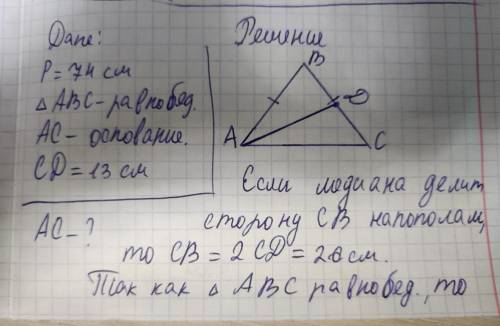 Дано:
Решение
P = 74 см
△ABC - равнобед.
AC - основание.
CD = 13 см
B
D
A
C
Если медиана делит
AC - ?
сторону CB напополам,
то CB = 2 CD = 26 см.
Так как △ ABC равнобед., то